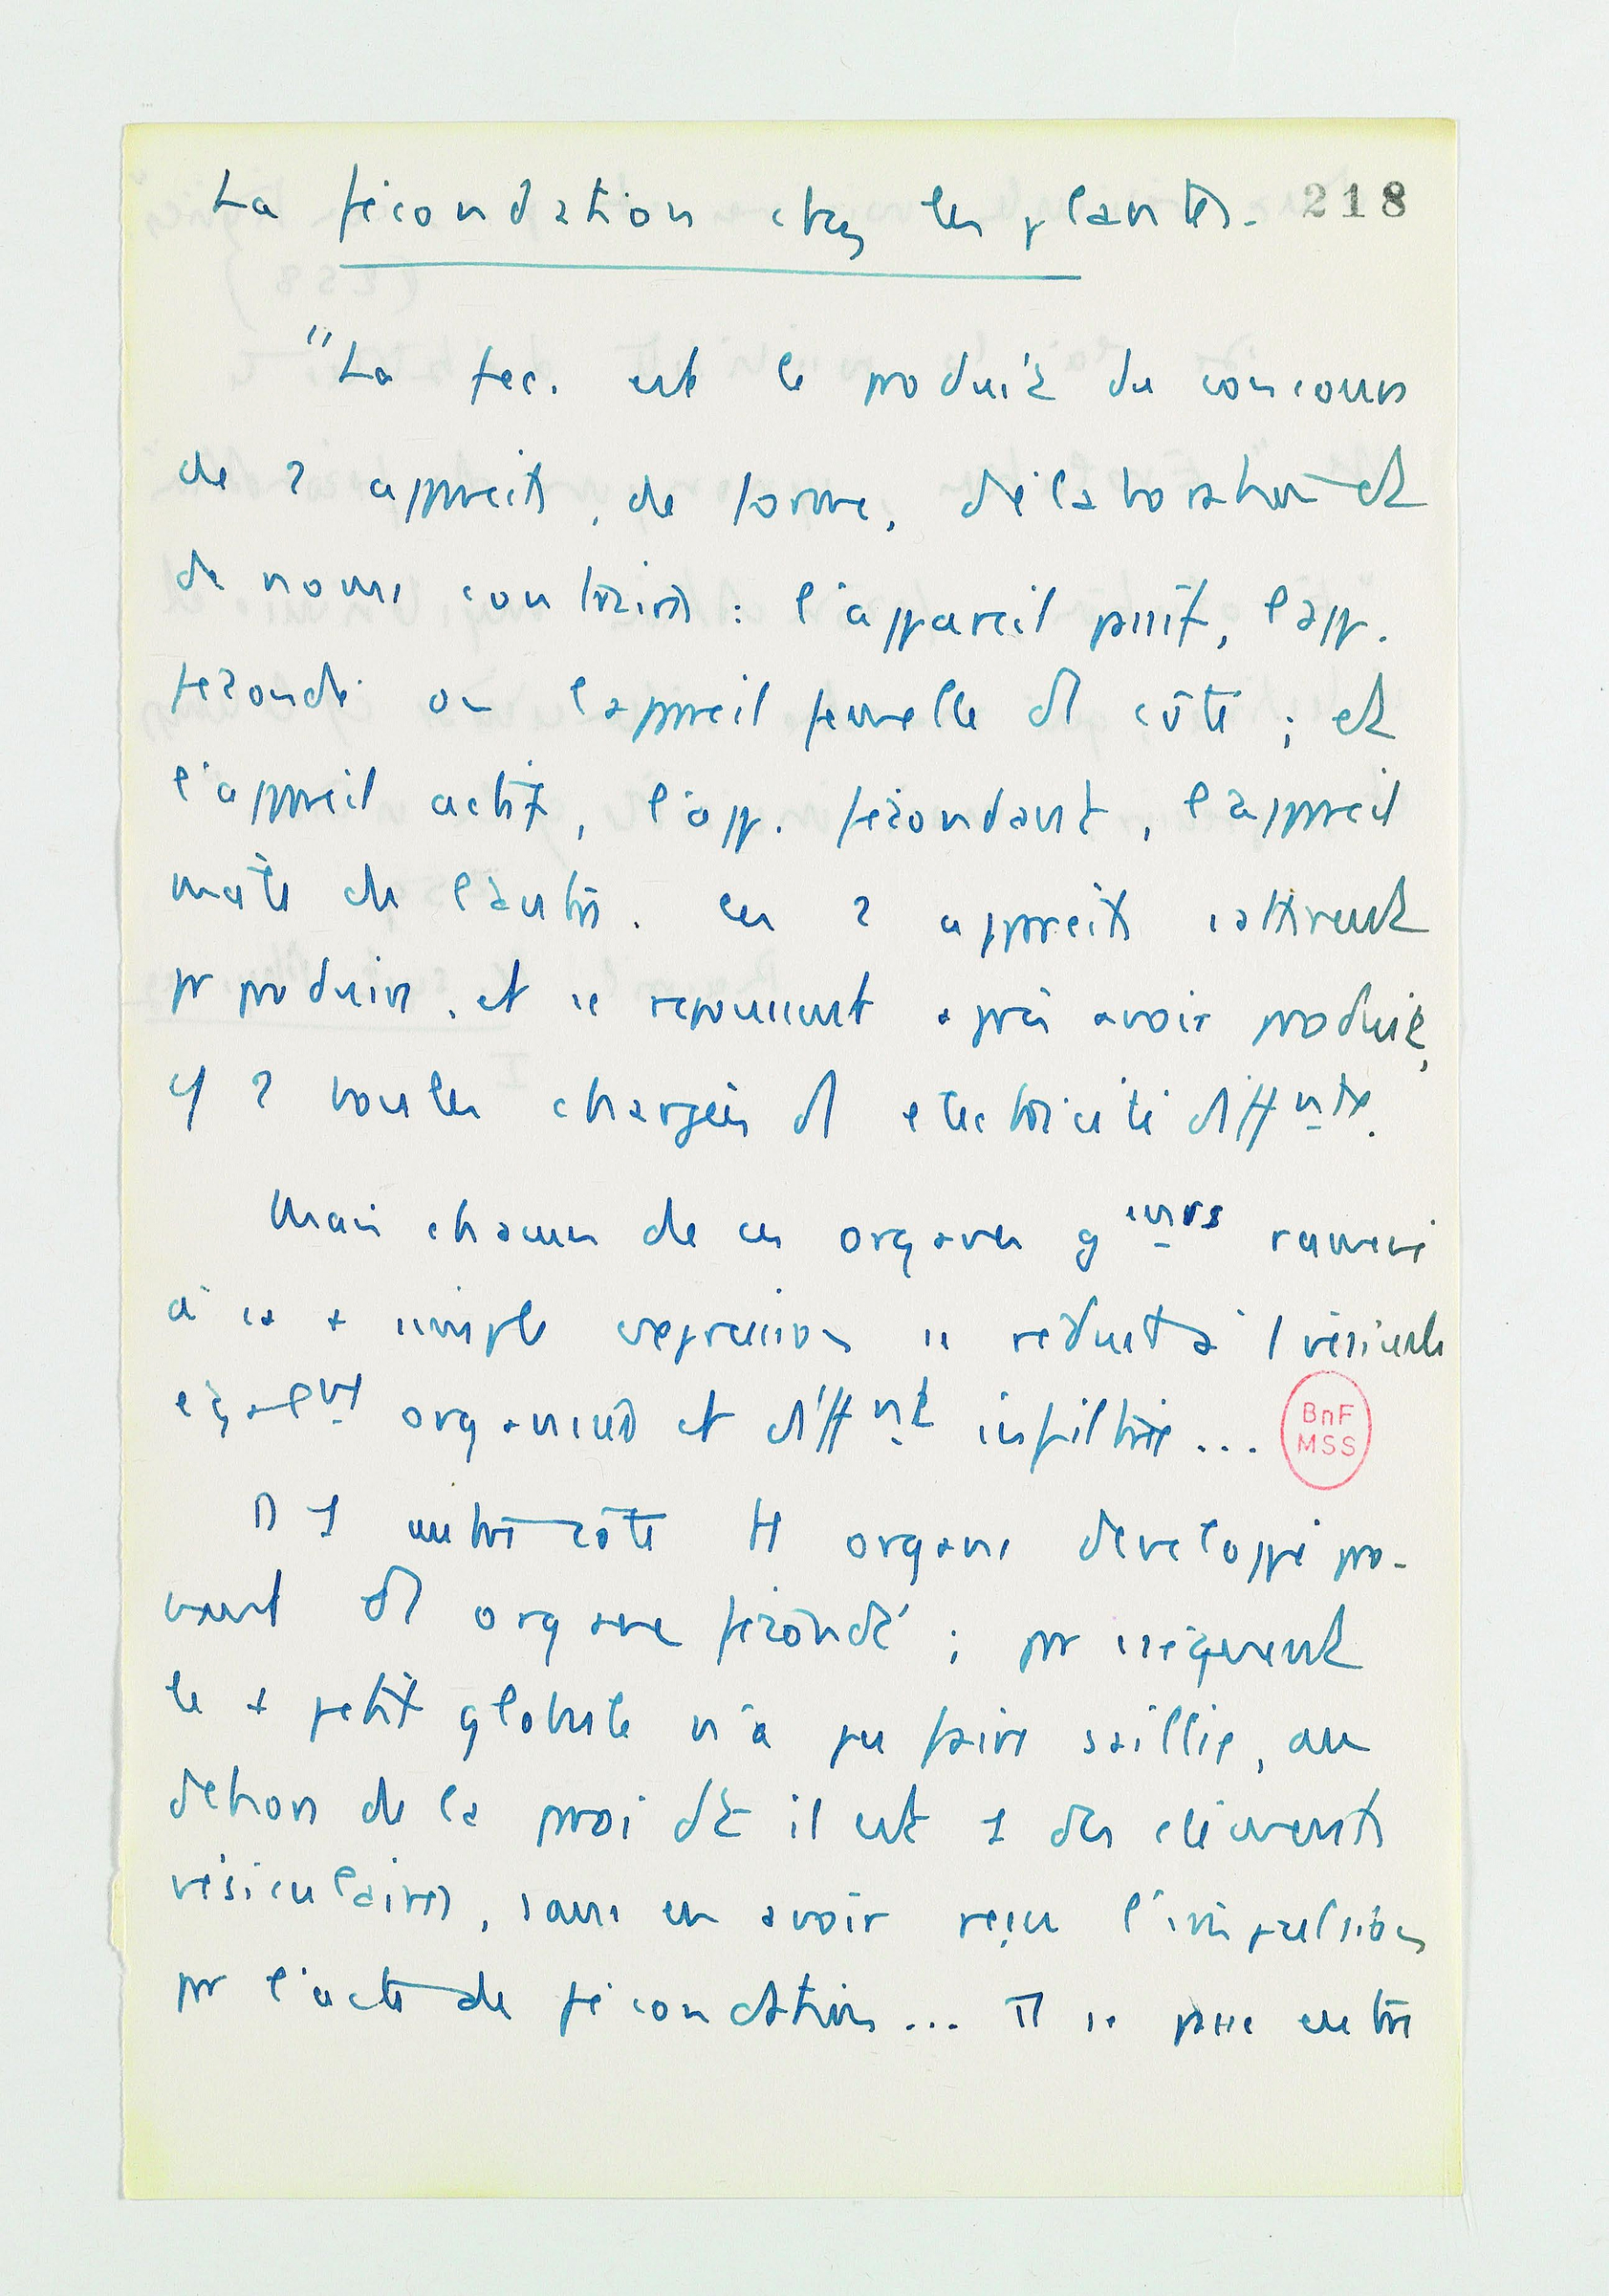 La fécondation chez les plantes. 218
"La fec. est le produit du concours
de 2 appareils, de forme, d'élaboration et
de noms contraires : l'appareil passif, l'app.
fécondé ou l'appareil femelle d'1 côté ; et
l'appareil actif, l'app. fécondant, l'appareil
mâle de l'autre. Ces 2 appareils s'attirent
pr produire, et se repoussent après avoir produit,
cf 2 boules chargées d'1 électricité diffnte.
Mais chacun de ces organes ramené
à sa + simple expression se réduit à 1 vésicule
égalnt organisée et diffnt infiltrée...
D'1 autre côté tt organe développé pro-
vient d'1 organe fécondé ; pr conséquent
le + petit globule n'a pu faire saillie, au
dehors de la paroi dt il est 1 des éléments
vésiculaires, sans en avoir reçu l'impulsion
pr l'acte de fécondation... Il se passe entre
BnF
MSS